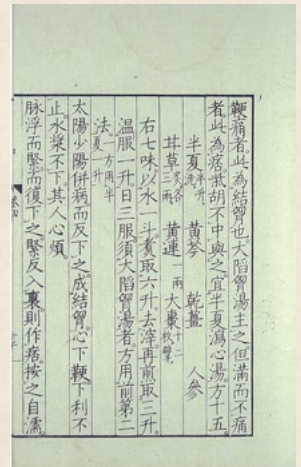 鞕痛者此為結胷也大䧟胷湯主之但滿而不痛
者此為痞柴胡不中與之宜半夏瀉心湯方十五
半夏半升洗 黃芩 乾薑 人參
甘草炙各三兩 黃連一兩 大棗十二枚擘
右七味以水一斗煮取六升去滓再煎取三升
温服一升日三服須大䧟胷湯者方用前第二
法一方用半夏一升
太陽少陽併病而反下之成結胷心下鞕下利不
止水漿不下其人心煩
脉浮而緊而復下之緊反入裏則作痞按之自濡